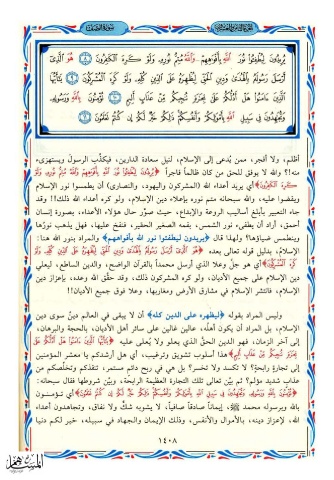 يُرِيدُونَ لِيُطْفِئُوا نُورَ اللَّهِ بِأَفْوَاهِهِمْ وَاللَّهُ مُتِمُّ نُورِهِ وَلَوْ كَرِهَ الْكَافِرُونَ ٨ هُوَ الَّذِي
أَرْسَلَ رَسُولَهُ بِالْهُدَى وَدِينِ الْحَقِّ لِيُظْهِرَهُ عَلَى الدِّينِ كُلِّهِ وَلَوْ كَرِهَ الْمُشْرِكُونَ ٩ يَا أَيُّهَا
الَّذِينَ آمَنُوا هَلْ أَدُلُّكُمْ عَلَى تِجَارَةٍ تُنجِيكُم مِّنْ عَذَابٍ أَلِيمٍ ١٠ تُؤْمِنُونَ بِاللَّهِ وَرَسُولِهِ
وَتُجَاهِدُونَ فِي سَبِيلِ اللَّهِ بِأَمْوَالِكُمْ وَأَنفُسِكُمْ ذَلِكُمْ خَيْرٌ لَّكُمْ إِن كُنتُمْ تَعْلَمُونَ ١١
أظلم، ولا أفجر، ممن يُدعى إلى الإسلام، لنيل سعادة الدارين، فيكذّب الرسول ويستهزىء
منه!؟ والله لا يوفق للحق من كان ظالماً فاجراً ﴿يُرِيدُونَ لِيُطْفِئُوا نُورَ اللَّهِ بِأَفْوَاهِهِمْ وَاللَّهُ مُتِمُّ نُورِهِ وَلَوْ
كَرِهَ الْكَافِرُونَ﴾ أي يريد أعداء الله (المشركون واليهود، والنصارى) أن يطمسوا نور الإسلام
ويقضوا عليه، والله سبحانه متم نوره بإعلاء دين الإسلام، ولو كره أعداء الله ذلك!! وقد
جاء التعبير بأبلغ أساليب الروعة والإبداع، حيث صوّر حال هؤلاء الأعداء، بصورة إنسان
أحمق، أراد أن يطفىء نور الشمس، بفمه الصغير الحقير، فنفخ عليها، فهل يذهب نورُها
وينطمس ضياؤها؟ ولهذا قال ﴿يريدون ليطفئوا نور الله بأفواههم﴾ والمراد بنور الله هنا:
الإسلامُ، بدليل قوله تعالى بعده ﴿هُوَ الَّذِي أَرْسَلَ رَسُولَهُ بِالْهُدَى وَدِينِ الْحَقِّ لِيُظْهِرَهُ عَلَى الدِّينِ كُلِّهِ وَلَوْ
كَرِهَ الْمُشْرِكُونَ﴾ أي هو جلّ وعلا الذي أرسل محمداً بالقرآن الواضح، والدين الساطع، ليعلي
دين الإسلام على جميع الأديان، ولو كره المشركون ذلك، وقد حقّق الله وعده، بإعزاز دين
الإسلام، فانتشر الإسلام في مشارق الأرض ومغاربها، وعلا فوق جميع الأديان!!
وليس المراد بقوله ﴿ليظهره على الدين كله﴾ أن لا يبقى في العالم دينٌ سوى دين
الإسلام، بل المراد أن يكون أهلُه، عالين غالبين على سائر أهل الأديان، بالحجة والبرهان،
إلى آخر الزمان، فهو الدين الحقُّ الذي يعلو ولا يُعلى عليه ﴿يَا أَيُّهَا الَّذِينَ آمَنُوا هَلْ أَدُلُّكُمْ عَلَى
تِجَارَةٍ تُنجِيكُم مِّنْ عَذَابٍ أَلِيمٍ﴾ هذا أسلوب تشويق وترغيب، أي هل أرشدكم يا معشر المؤمنين
إلى تجارةٍ رابحةٍ؟ لا تكسد ولا تخسر؟ بل هي في ربح دائم مستمر، تنقذكم وتخلّصكم من
عذاب شديد مؤلم؟ ثم بيّن تعالى تلك التجارة العظيمة الرابحة، وبيّن شروطها فقال سبحانه:
﴿تُؤْمِنُونَ بِاللَّهِ وَرَسُولِهِ وَتُجَاهِدُونَ فِي سَبِيلِ اللَّهِ بِأَمْوَالِكُمْ وَأَنفُسِكُمْ ذَلِكُمْ خَيْرٌ لَّكُمْ إِن كُنتُمْ تَعْلَمُونَ﴾ أي تؤمنون
بالله وبرسوله محمد ﷺ، إيماناً صادقاً صافياً، لا يشوبه شكٌّ ولا نفاق، وتجاهدون أعداء
الله، لإعزاز دينه، بالأموال والأنفس، وذلك الإيمان والجهاد في سبيله، خير لكم دنيا
١٤٠٨